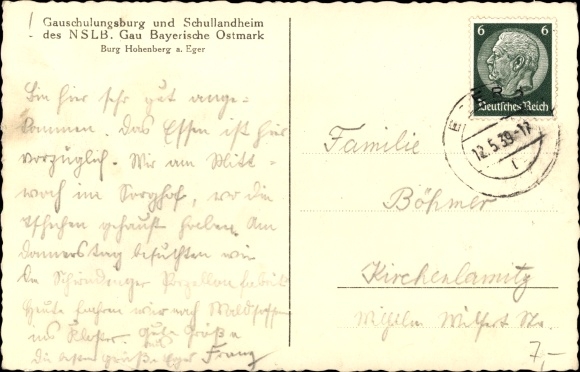 Gauschulungsburg und Schullandheim
des NSLB. Gau Bayerische Ostmark
Burg Hohenberg a. Eger
Bin hier sehr gut ange-
kommen. Das Essen ist hier
vorzüglich. Wir am Mitt-
woch im Sorghof, wo die
Tschechen gehaust haben. Am
Donnerstag besuchten wir
Porzellanfabrik
Heute fahren wir nach Waldsassen
ins Kloster. Gute Grüße
Franz
6 6
Deutsches Reich
12.5.39-17
Familie
Böhmer
Kirchenlamitz
Wilhelm
7,-